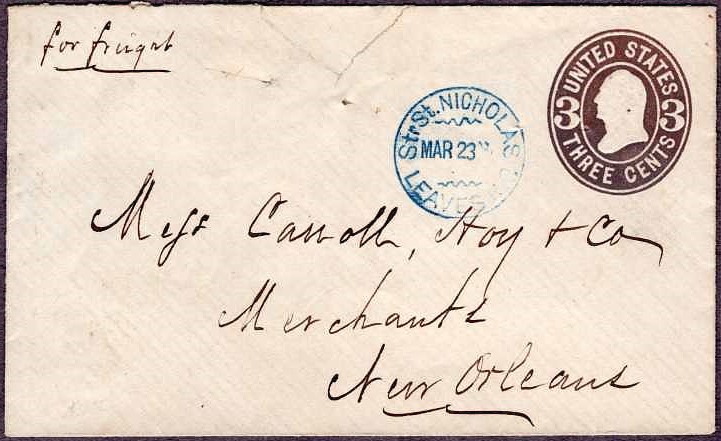 for freight
UNITED STATES
3 3
THREE CENTS
Str St. NICHOLAS
MAR 23
LEAVES
Mess Carroll, Hoy & Co
Merchants
New Orleans